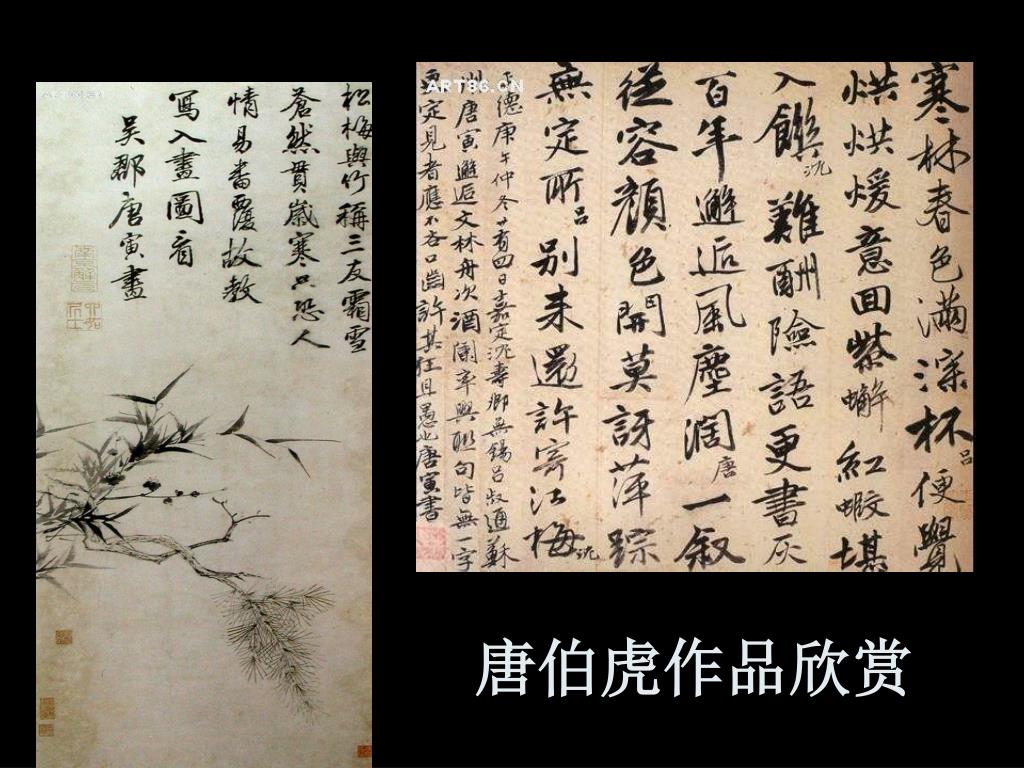 松梅與竹稱三友霜雪
蒼然貫歲寒只恐人
情易畨覆故教
寫入畫圖看
吳郡唐寅畫
ART86.CN
寒林春色滿深杯吕便覺
烘烘煖意回紫蠏紅蝦堪
入饌沈難酬險語更書灰
百年邂逅風塵闊唐一叙
從容顔色開莫訝萍踪
無定所吕别来還許寄江梅沈
正德庚午仲冬廿有四日嘉定沈壽卿無錫吕叔通蘇
州唐寅邂逅文林舟次酒闌率興聯句皆無一字
更定見者應不吝口齒許其狂且愚也唐寅書
唐伯虎作品欣赏